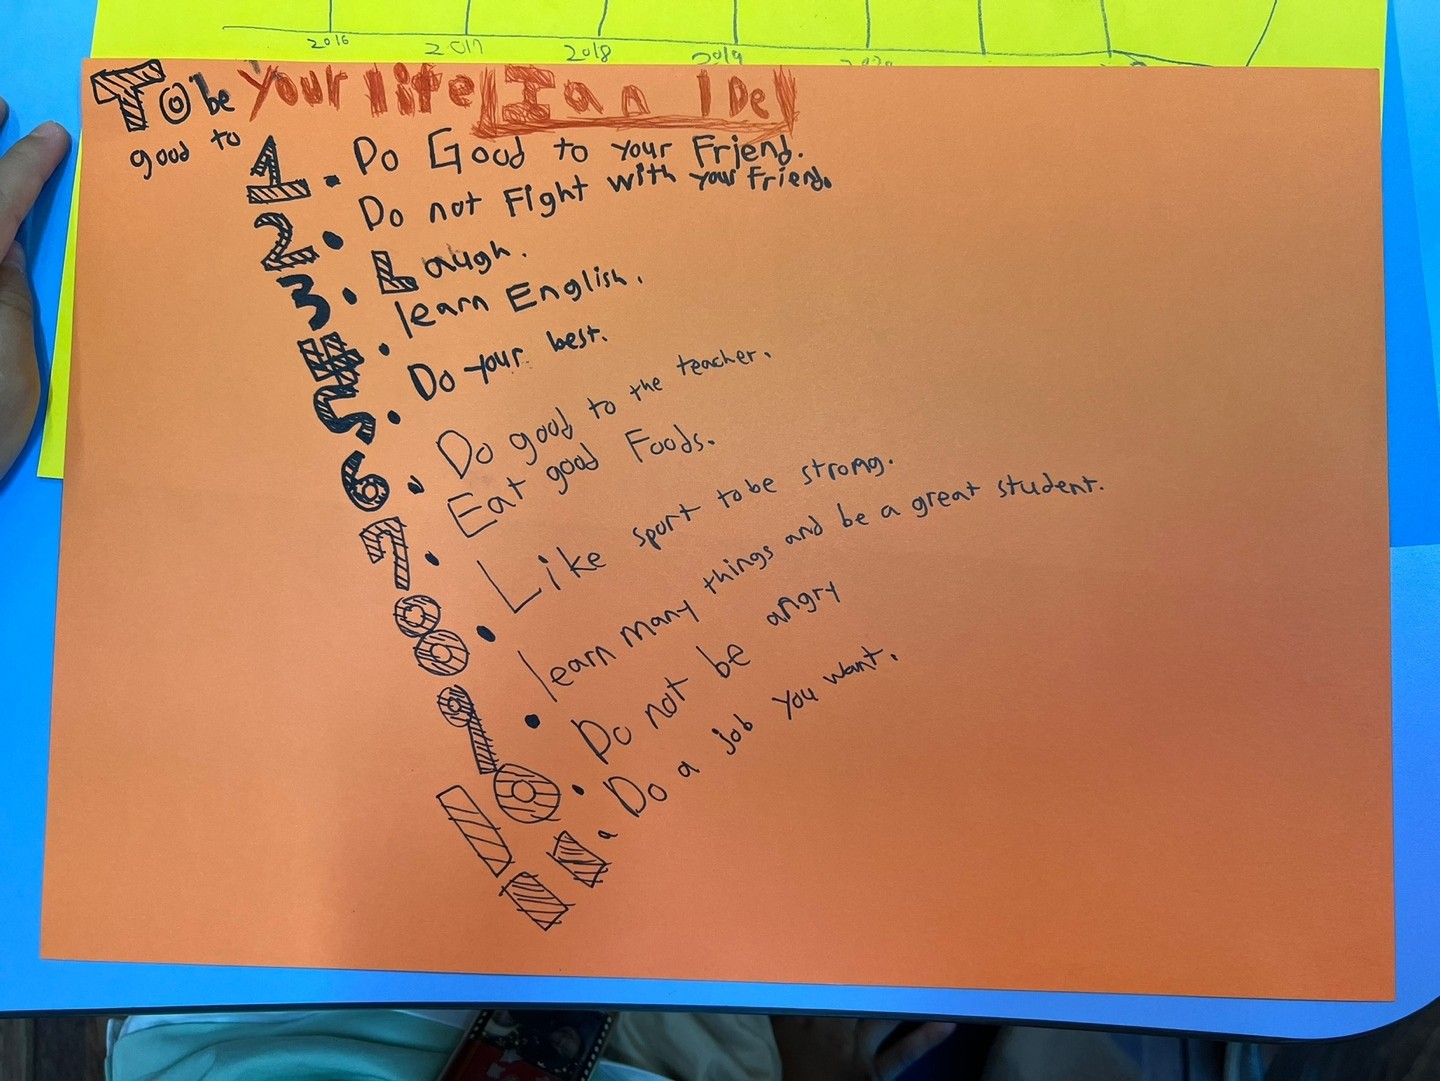 2016 2017 2018 2019 2020
To be Your life Ian IDe
good to
1. Do Good to your Friend.
2. Do not Fight with your Friend.
3. Laugh.
4. learn English.
5. Do your best.
6. Do good to the teacher.
7. Eat good Foods.
8. Like sport to be strong.
9. learn many things and be a great student.
10. Do not be angry
11. Do a job you want.